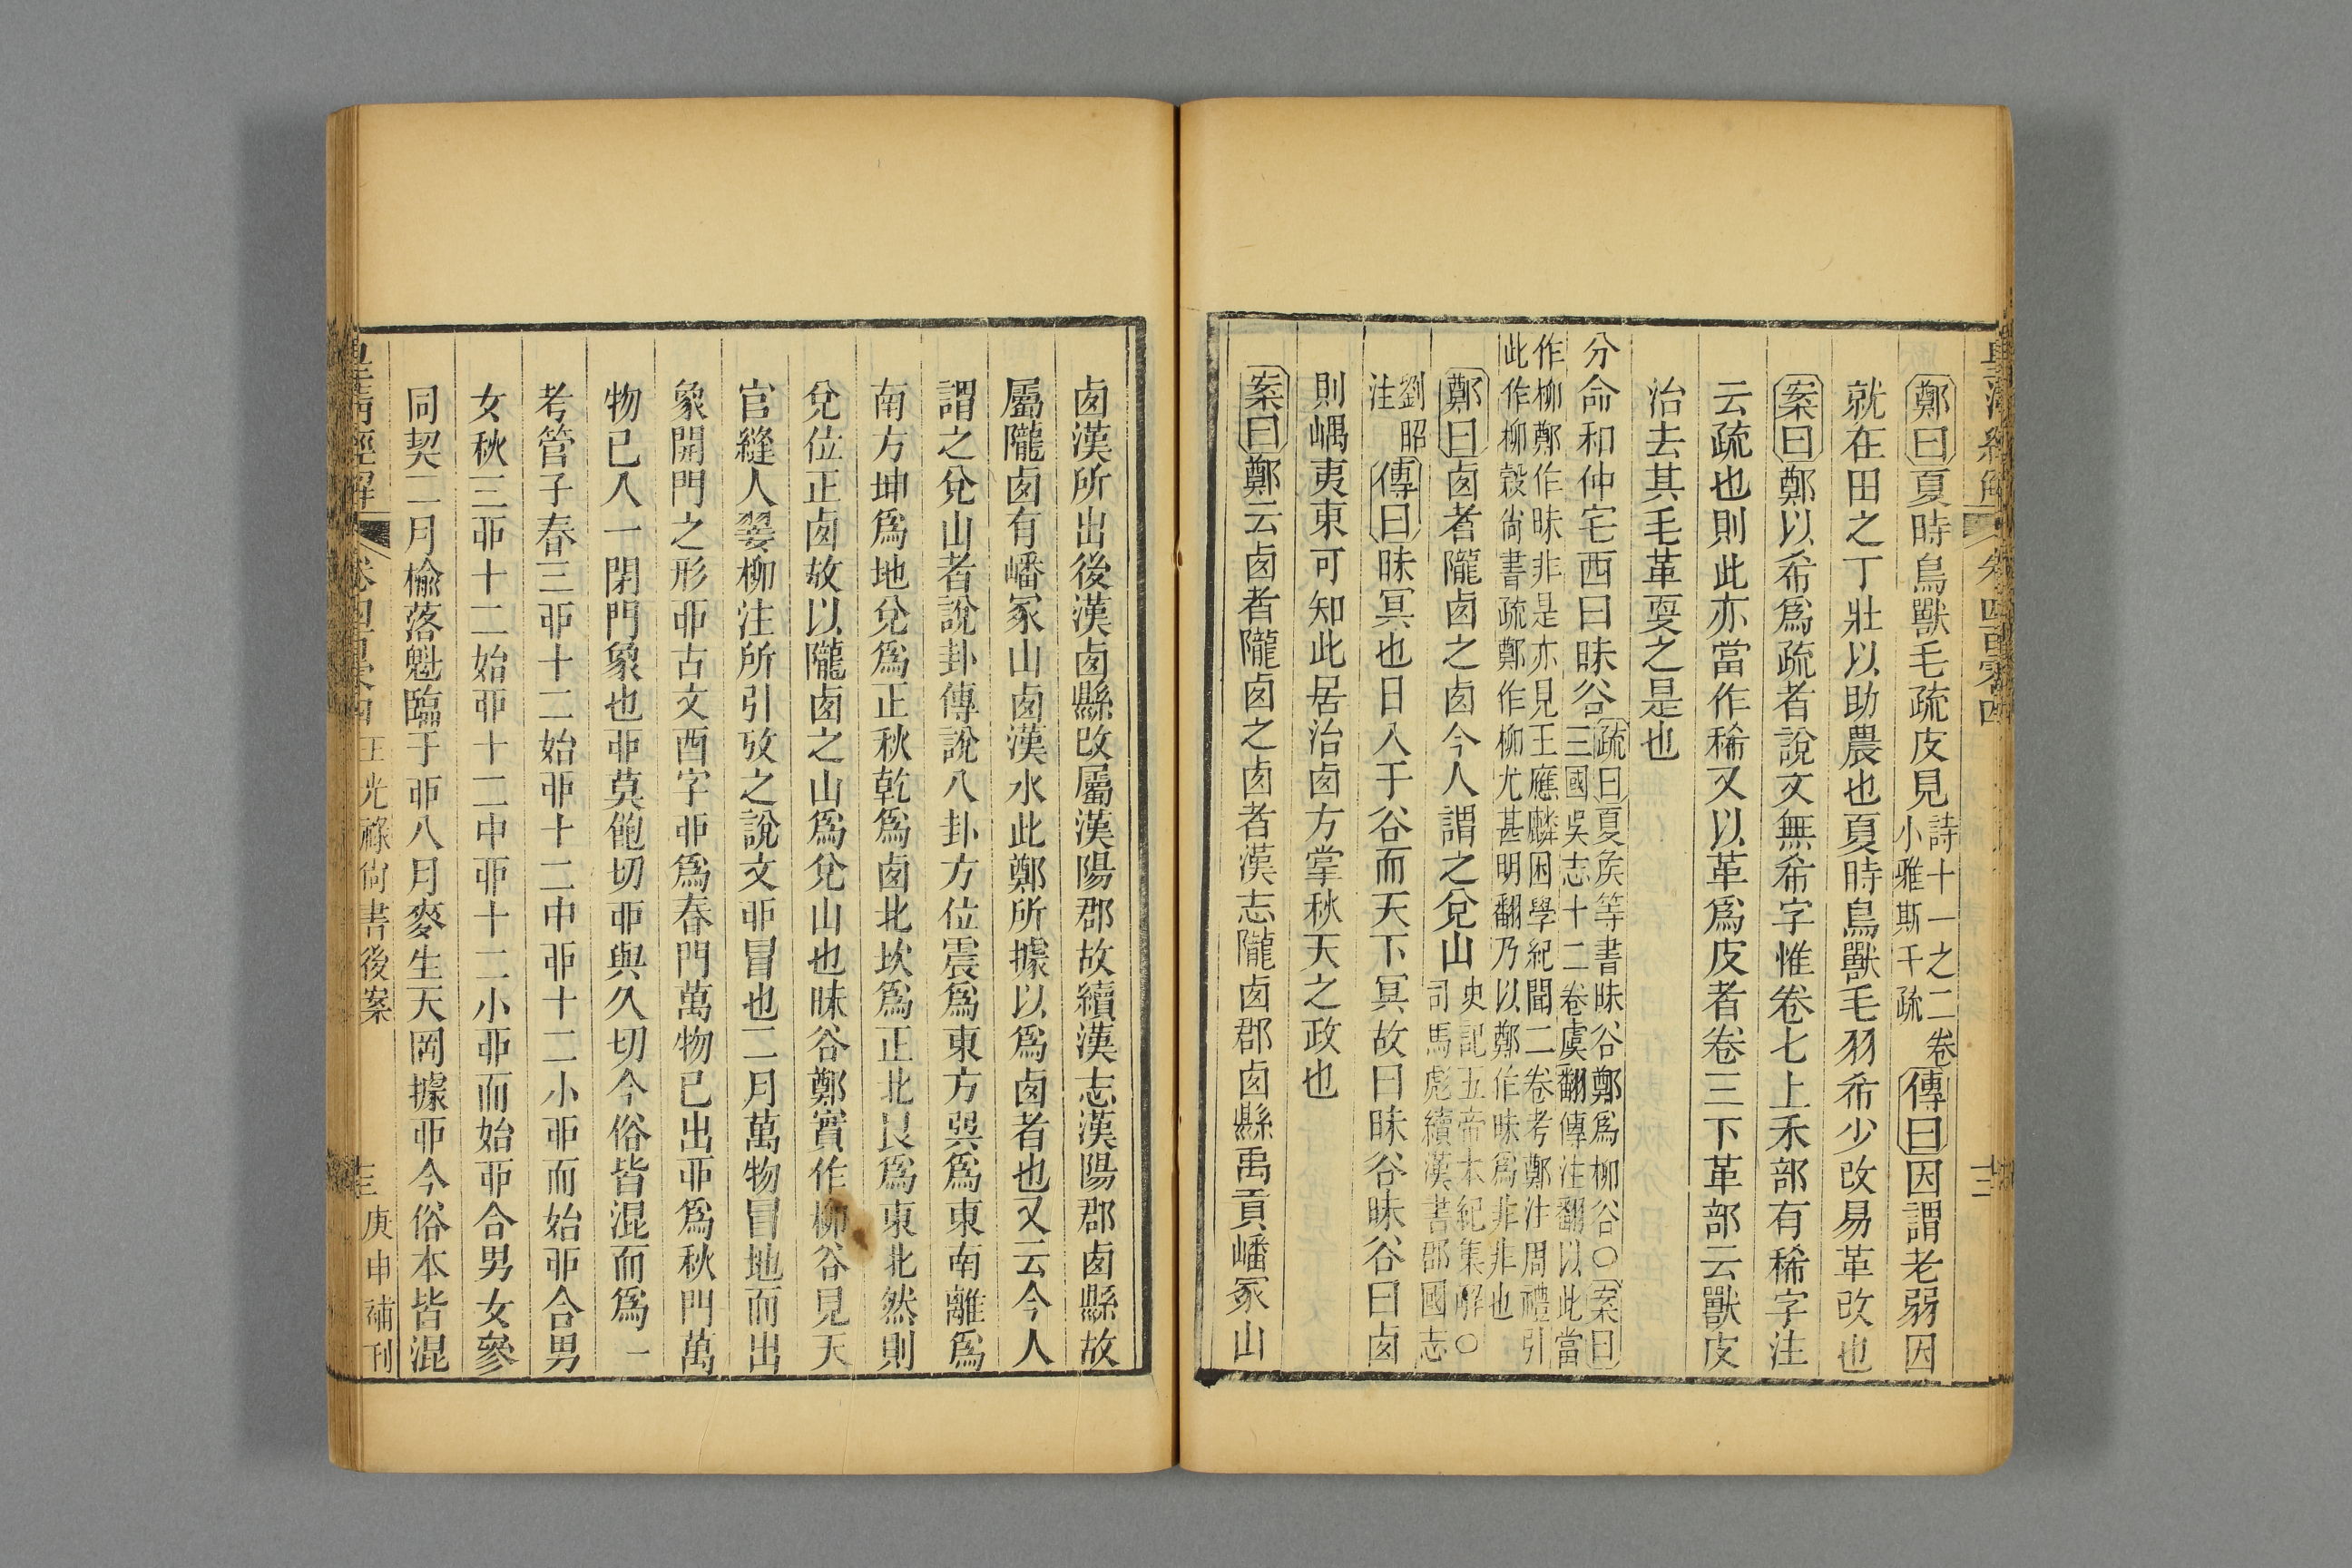 皇清經解
卷四百零四
十三
鄭曰夏時鳥獸毛疏皮見詩十一之二卷小雅斯干疏傳曰因謂老弱因
就在田之丁壯以助農也夏時鳥獸毛羽希少改易革改也
案曰鄭以希爲疏者說文無希字惟卷七上禾部有稀字注
云疏也則此亦當作稀又以革爲皮者卷三下革部云獸皮
治去其毛革耎之是也
分命和仲宅西曰昧谷疏曰夏矦等書昧谷鄭爲柳谷○案曰三國吳志十二卷虞翻傳注翻以此當
作柳鄭作昧非是亦見王應麟困學紀聞二卷考鄭注周禮引此作柳穀尙書疏鄭作柳尤甚明翻乃以鄭作昧爲非非也
鄭曰卤者隴卤之卤今人謂之兌山史記五帝本紀集解○司馬彪續漢書郡國志
劉昭注傳曰昧冥也日入于谷而天下冥故曰昧谷昧谷曰卤
則嵎夷東可知此居治卤方掌秋天之政也
案曰鄭云卤者隴卤之卤者漢志隴卤郡卤縣禹貢嶓冢山
卤漢所出後漢卤縣改屬漢陽郡故續漢志漢陽郡卤縣故
屬隴卤有嶓冢山卤漢水此鄭所據以爲卤者也又云今人
謂之兌山者說卦傳說八卦方位震爲東方巽爲東南離爲
南方坤爲地兌爲正秋乾爲卤北坎爲正北艮爲東北然則
兌位正卤故以隴卤之山爲兌山也昧谷鄭實作柳谷見天
官縫人翣柳注所引攷之說文丣冒也二月萬物冒地而出
象開門之形丣古文酉字丣爲春門萬物已出丣爲秋門萬
物已入一閉門象也丣莫飽切丣與久切今俗皆混而爲一
考管子春三丣十二始丣十二中丣十二小丣而始丣合男
女秋三丣十二始丣十二中丣十二小丣而始丣合男女參
同契二月楡落魁臨于丣八月麥生天罡據丣今俗本皆混
皇清經解
卷四百零四
王光祿尙書後案
十三
庚申補刊